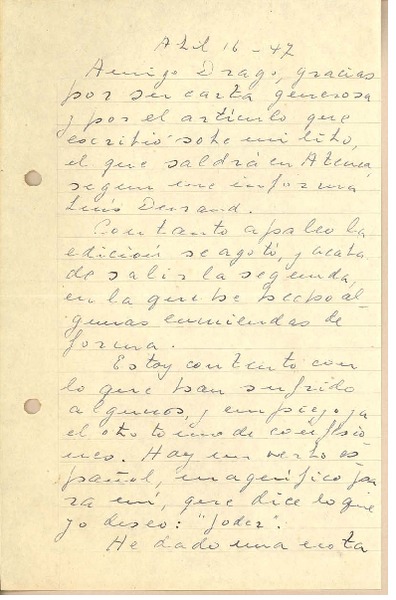 Abril 16 - 47
Amigo Drago, gracias
por su carta generosa
y por el artículo que
escribió sobre mi libro,
el que saldrá en Atenea,
según me informa
Luis Durand.
Con tanto apaleo la
edición se agotó, y acaba
de salir la segunda,
en la que he hecho al
gunas enmiendas de
forma.
Estoy contento con
lo que han sufrido
algunos, y empiezo ya
el otro tomo de confesio
nes. Hay un verbo es
pañol, magnífico pa
ra mí, que dice lo que
yo deseo: "joder".
He dado una nota